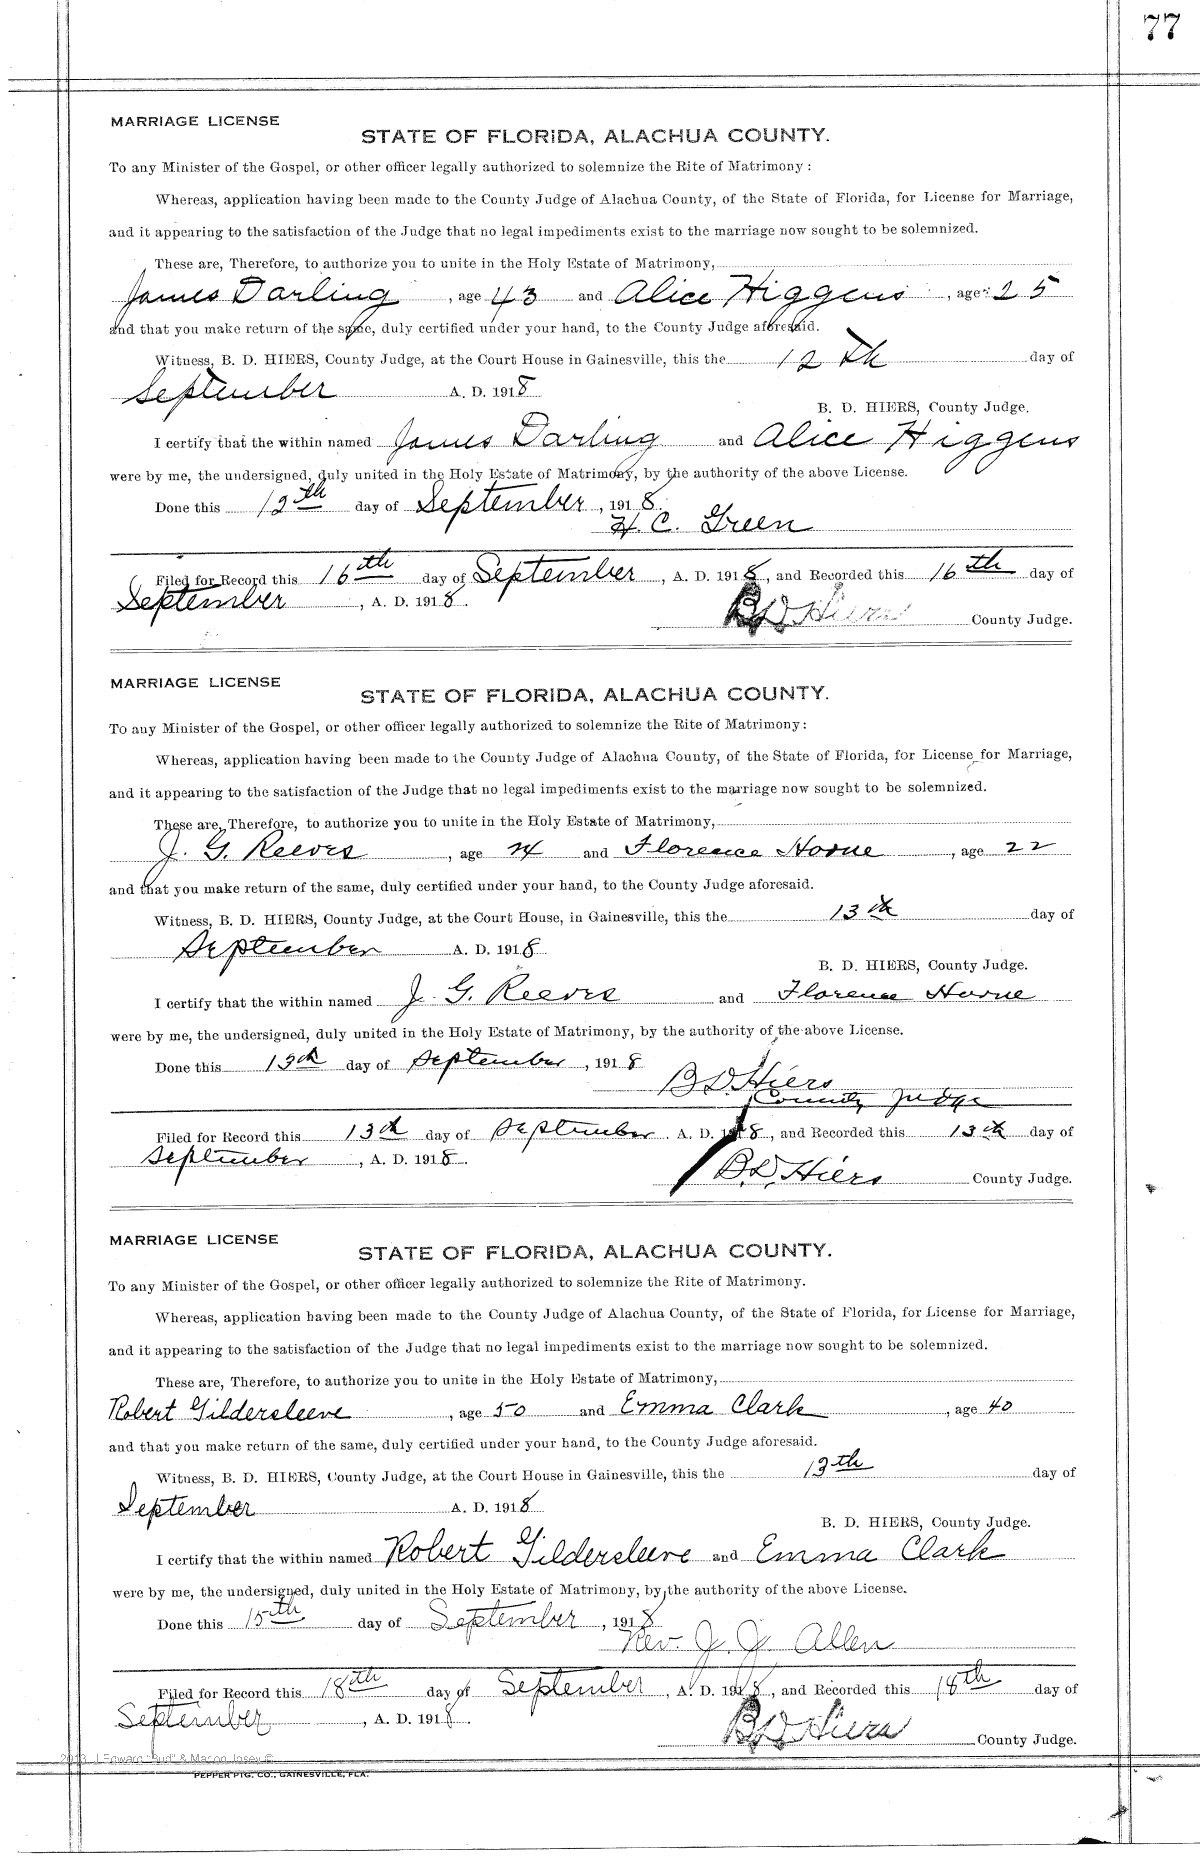 77
MARRIAGE LICENSE
STATE OF FLORIDA, ALACHUA COUNTY.
To any Minister of the Gospel, or other officer legally authorized to solemnize the Rite of Matrimony:
Whereas, application having been made to the County Judge of Alachua County, of the State of Florida, for License for Marriage,
and it appearing to the satisfaction of the Judge that no legal impediments exist to the marriage now sought to be solemnized.
These are, Therefore, to authorize you to unite in the Holy Estate of Matrimony,
James Darling, age 43 and Alice Higgens, age 25
and that you make return of the same, duly certified under your hand, to the County Judge aforesaid.
Witness, B. D. HIERS, County Judge, at the Court House in Gainesville, this the 12th day of
September A. D. 1918
B. D. HIERS, County Judge.
I certify that the within named James Darling and Alice Higgens
were by me, the undersigned, duly united in the Holy Estate of Matrimony, by the authority of the above License.
Done this 12th day of September, 1918.
H. C. Green
Filed for Record this 16th day of September, A. D. 1918, and Recorded this 16th day of
September, A. D. 1918.
B D Hiers County Judge.
MARRIAGE LICENSE
STATE OF FLORIDA, ALACHUA COUNTY.
To any Minister of the Gospel, or other officer legally authorized to solemnize the Rite of Matrimony:
Whereas, application having been made to the County Judge of Alachua County, of the State of Florida, for License for Marriage,
and it appearing to the satisfaction of the Judge that no legal impediments exist to the marriage now sought to be solemnized.
These are, Therefore, to authorize you to unite in the Holy Estate of Matrimony,
J. G. Reeves, age 24 and Florence Horne, age 22
and that you make return of the same, duly certified under your hand, to the County Judge aforesaid.
Witness, B. D. HIERS, County Judge, at the Court House, in Gainesville, this the 13th day of
September A. D. 1918
B. D. HIERS, County Judge.
I certify that the within named J. G. Reeves and Florence Horne
were by me, the undersigned, duly united in the Holy Estate of Matrimony, by the authority of the above License.
Done this 13th day of September, 1918
B D Hiers
County Judge
Filed for Record this 13th day of September. A. D. 1918, and Recorded this 13th day of
September, A. D. 1918.
B. D. Hiers County Judge.
MARRIAGE LICENSE
STATE OF FLORIDA, ALACHUA COUNTY.
To any Minister of the Gospel, or other officer legally authorized to solemnize the Rite of Matrimony.
Whereas, application having been made to the County Judge of Alachua County, of the State of Florida, for License for Marriage,
and it appearing to the satisfaction of the Judge that no legal impediments exist to the marriage now sought to be solemnized.
These are, Therefore, to authorize you to unite in the Holy Estate of Matrimony,
Robert Gildersleeve, age 50 and Emma Clark, age 40
and that you make return of the same, duly certified under your hand, to the County Judge aforesaid.
Witness, B. D. HIERS, County Judge, at the Court House in Gainesville, this the 13th day of
September A. D. 1918
B. D. HIERS, County Judge.
I certify that the within named Robert Gildersleeve and Emma Clark
were by me, the undersigned, duly united in the Holy Estate of Matrimony, by the authority of the above License.
Done this 15th day of September, 1918
Rev. J. J. Allen
Filed for Record this 18th day of September, A. D. 1918, and Recorded this 18th day of
September, A. D. 1918.
B D Hiers County Judge.
2013 J Edward "Bud" & Macon Josey ©
PEPPER PTG. CO., GAINESVILLE, FLA.